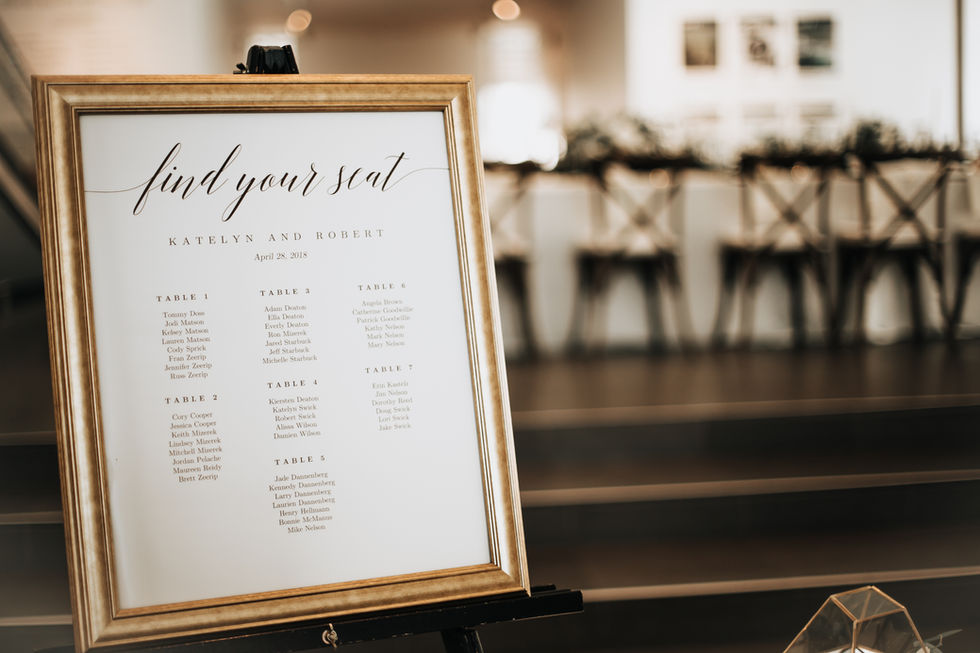 find your seat
KATELYN AND ROBERT
April 28, 2018
TABLE 1
Tommy Doss
Jodi Matson
Kelsey Matson
Lauren Matson
Cody Sprick
Fran Zeerip
Jennifer Zeerip
Russ Zeerip
TABLE 2
Cory Cooper
Jessica Cooper
Keith Mizerek
Lindsey Mizerek
Mitchell Mizerek
Jordan Pelache
Maureen Reidy
Brett Zeerip
TABLE 3
Adam Deaton
Ella Deaton
Everly Deaton
Ron Mizerek
Jared Starbuck
Jeff Starbuck
Michelle Starbuck
TABLE 4
Kiersten Deaton
Katelyn Swick
Robert Swick
Alissa Wilson
Damien Wilson
TABLE 5
Jade Dannenberg
Kennedy Dannenberg
Larry Dannenberg
Laurien Dannenberg
Henry Hellmann
Bonnie McManus
Mike Nelson
TABLE 6
Angela Brown
Catherine Goodwillie
Patrick Goodwillie
Kathy Nelson
Mark Nelson
Mary Nelson
TABLE 7
Erin Kastelz
Jan Nelson
Dorothy Reed
Doug Swick
Lori Swick
Jake Swick